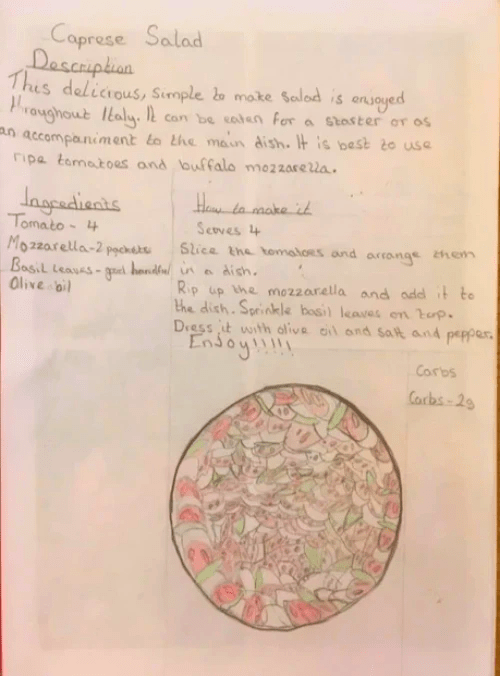 Caprese Salad
Description
This delicious, simple to make salad is enjoyed
throughout Italy. It can be eaten for a starter or as
an accompaniment to the main dish. It is best to use
ripe tomatoes and buffalo mozzarella.
Ingredients
Tomato - 4
Mozzarella - 2 packets
Basil leaves - good handful
Olive oil
How to make it
Serves 4
Slice the tomatoes and arrange them
in a dish.
Rip up the mozzarella and add it to
the dish. Sprinkle basil leaves on top.
Dress it with olive oil and salt and pepper.
Enjoy!!!!!
Carbs
Carbs - 2g